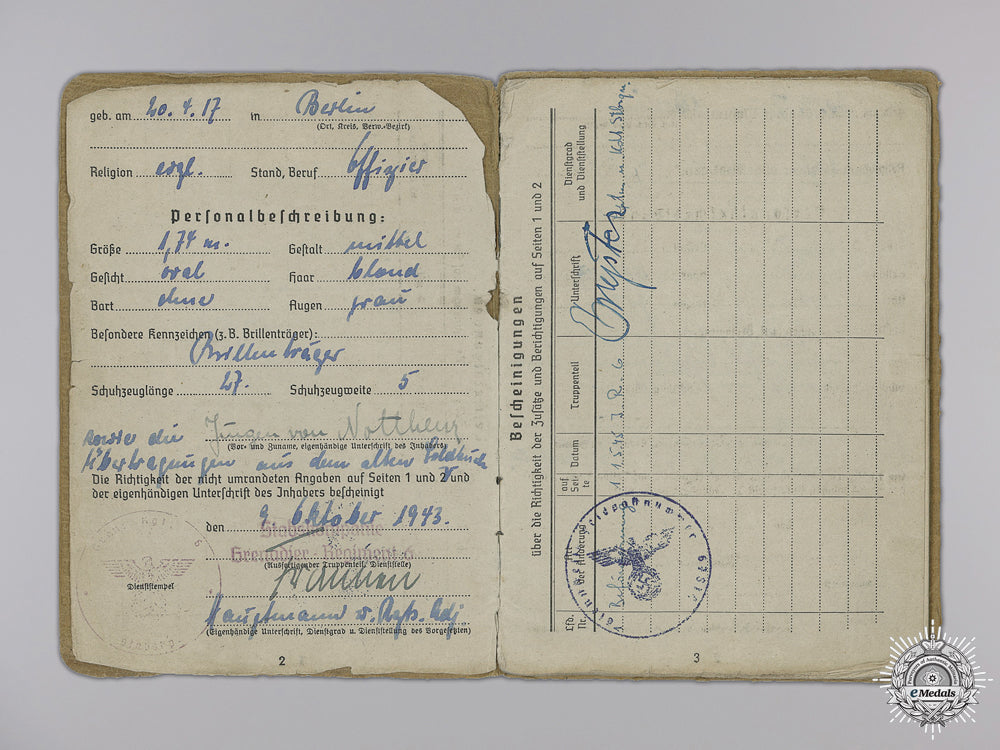 geb. am 20.4.17 in Berlin
(Ort, Kreis, Verw.-Bezirk)
Religion evgl. Stand, Beruf Offizier
Personalbeschreibung:
Größe 1,74 m. Gestalt mittel
Gesicht oval Haar blond
Bart ohne Augen grau
Besondere Kennzeichen (z. B. Brillenträger):
Brillenträger
Schuhzeuglänge 27. Schuhzeugweite 5
sowie die Jürgen von
(Vor- und Zuname, eigenhändige Unterschrift des Inhabers)
Übertragungen aus dem alten Soldbuch
Die Richtigkeit der nicht umrandeten Angaben auf Seiten 1 und 2 und
der eigenhändigen Unterschrift des Inhabers bescheinigt
den 9. Oktober 1943.
Stabskompanie
Grenadier-Regiment 6
(Ausfertigender Truppenteil, Dienststelle)
Dienststempel
Hauptmann u. Rgts. Adj.
(Eigenhändige Unterschrift, Dienstgrad u. Dienststellung des Vorgesetzten)
2
Bescheinigungen
über die Richtigkeit der Zusätze und Berichtigungen auf Seiten 1 und 2
Lfd. Nr.
Art der Änderung
auf Seite
Datum
Truppenteil
Unterschrift
Dienstgrad und Dienststellung
1. 1 1.5.45 J. R. 6
Feldpostnummer
3
eMedals